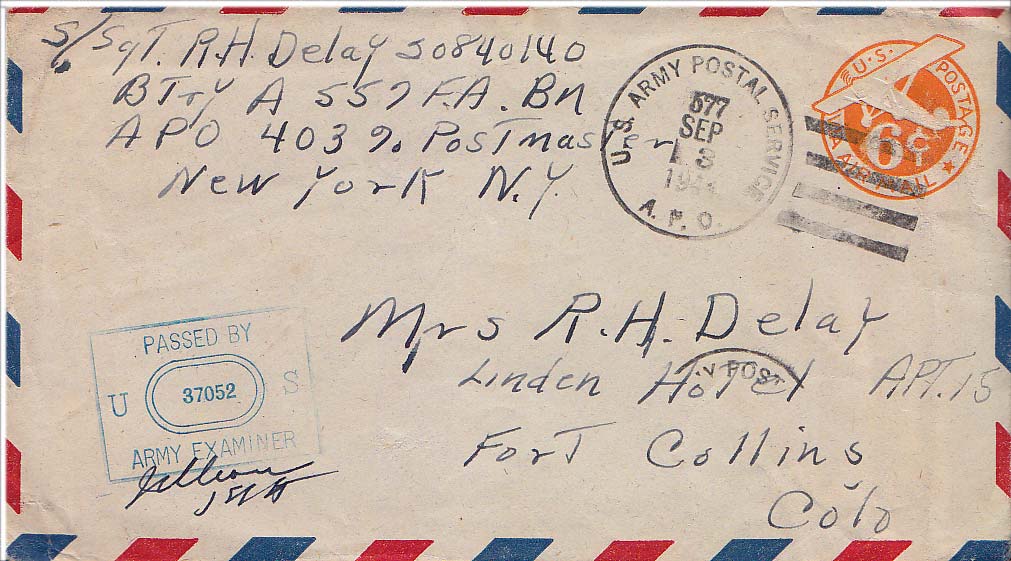 S/Sgt. R.H. Delay 30840140
BTry A 557 F.A. Bn
APO 403 % Postmaster
New York N.Y.
U.S. ARMY POSTAL SERVICE
577
SEP
3
A.P.O.
U.S. POSTAGE
6¢
AIR MAIL
Mrs R.H. Delay
Linden Hotel APT. 15
Fort Collins
Colo
POST
PASSED BY
U 37052 S
ARMY EXAMINER